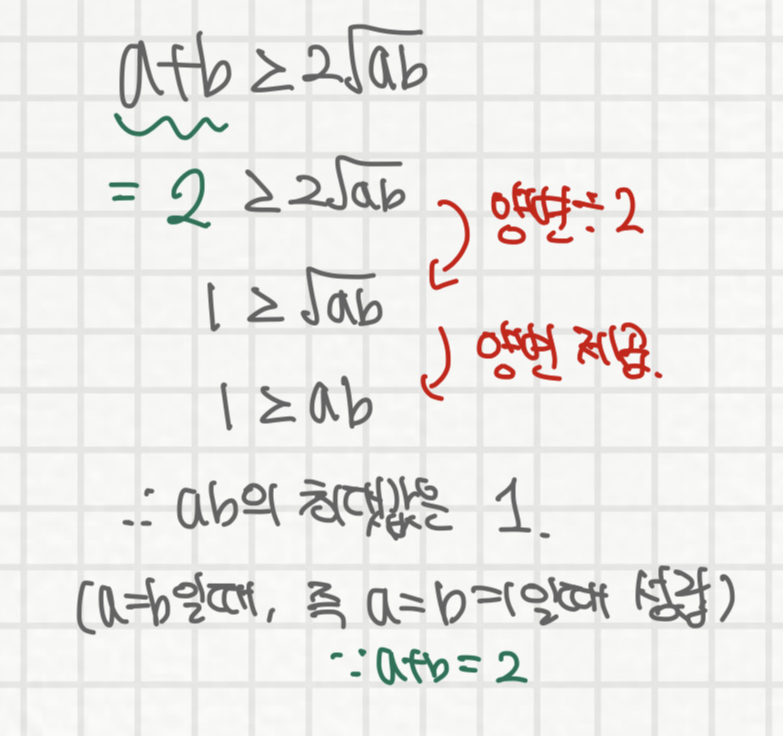 a+b ≥ 2√ab
= 2 ≥ 2√ab
양변÷2
1 ≥ √ab
양변 제곱.
1 ≥ ab
∴ ab의 최댓값은 1.
(a=b일때, 즉 a=b=1일때 성립)
∵ a+b=2